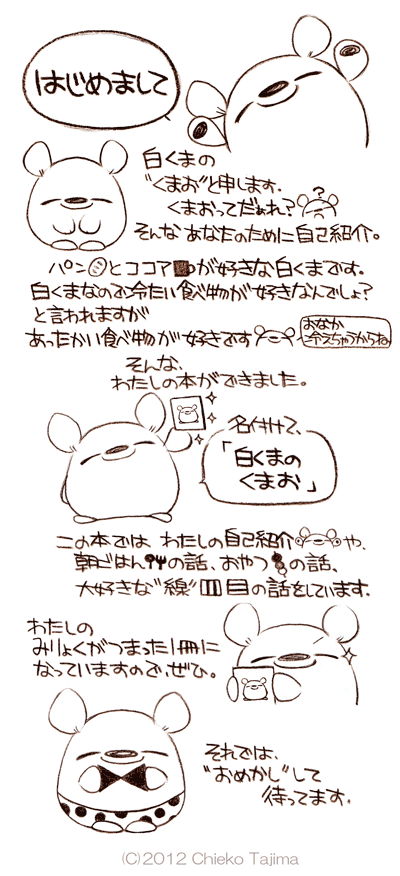 はじめまして
白くまの
"くまお"と申します.
くまおってだぁれ?
?
そんな あなたのために自己紹介。
パンとココアが好きな白くまです.
白くまなので冷たい食べ物が好きなんでしょ?
と言われますが
あったかい食べ物が好きです
おなか
冷えちゃうからね
そんな、
わたしの本ができました。
名付けて、
「白くまの
くまお」
この本では わたしの自己紹介や、
朝ごはんの話、おやつの話、
大好きな"線"の話をしています.
わたしの
みりょくがつまった1冊に
なっていますので、ぜひ。
それでは、
"おめかし"して
待ってます.
(C)2012 Chieko Tajima